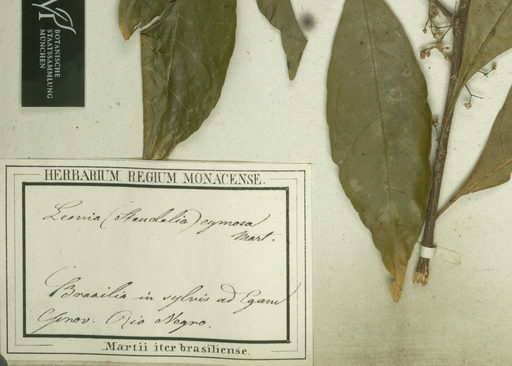 BOTANISCHE
STAATSSAMMLUNG
MÜNCHEN
HERBARIUM REGIUM MONACENSE.
Leonia (Steudelia) cymosa
Mart.
Brasilia in sylvis ad Egam
prov. Rio Negro.
Martii iter brasiliense.